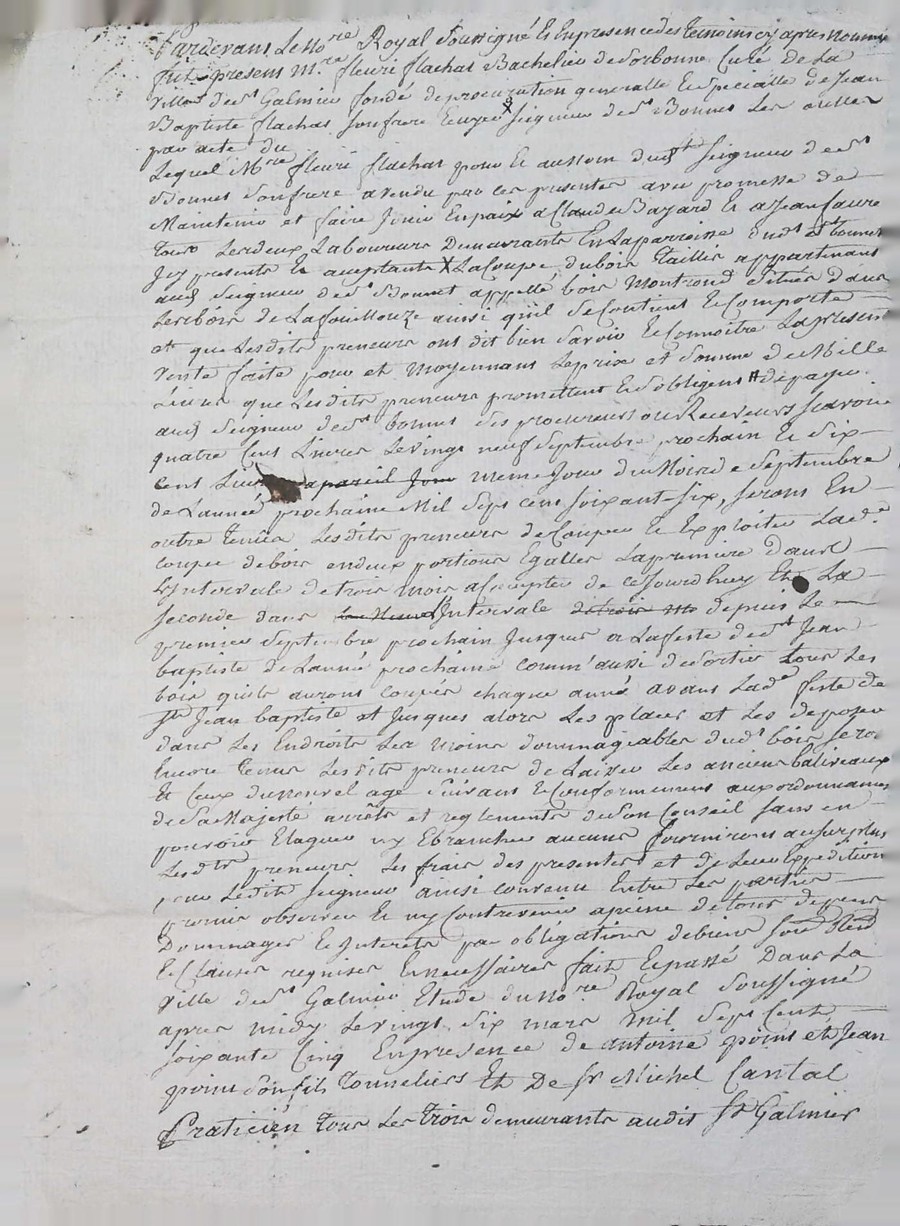 Pardevant Le No.re Royal Soussigné et En presence des temoins cy apres nommés
fut present M.re fleuri flachat Bachelier de Sorbonne Curé De La
Ville de s.t Galmier fondé de procuration generalle et specialle de Jean
Baptiste flachat son frere Ecuyer X Seigneur de s.t Bonnet Les oulles
par acte du
Lequel M.re fleuri flachat pour et au nom dud Seigneur de s.t
Bonnet son frere a vendu par ces presentes avec promesse de
Maintenir et faire Jouir En paix a Claude Bayard et a Jean faure
tous Les deux Laboureurs Demeurants En La parroisse dud s.t bonnet
Icy presents et acceptants X La Coupe du bois taillis appartenant
aud Seigneur de s.t Bonnet appellé bois Montrond situés dans
Les bois de La fouillouze ainsi qu'il se Contient et Comporte
et que Lesdits preneurs ont dit bien Savoir et Connoitre La presente
Vente faite pour et Moyennant Le prix et somme de Mille
Livres que Lesdits preneurs promettent et s'obligent # de payer
aud Seigneur de s.t bonnet ses procureurs ou Receveurs Scavoir
quatre Cent Livres Le vingt neuf Septembre prochain et Six
Cent Livres a pareil Jour meme Jour du Moire de Septembre
de L'année prochaine Mil Sept cens soixant-six, seront En
outre tenus Lesdits preneurs de Couper et Exploiter Lad.e
coupe de bois en deux portions Egalles La premiere dans
L'Intervale de trois mois a Compter de ce Jourd'huy Et La
seconde dans Intervale de trois mo depuis Le
premier Septembre prochain Jusques a La feste de s.t Jean
baptiste de L'année prochaine comm'aussi de sortir tous Les
bois qu'ils auront coupés chaque année avant Lad.e feste de
s.t Jean baptiste et Jusques alors Les placer et Les deposer
dans Les Endroits Les moins dommageables dud.t bois Sero
Encore tenus Lesdits preneurs de Laisser Les anciens baliveaux
Et Ceux du nouvel age suivant et Conformement aux ordonnances
de Sa Majesté arrêts et reglements de son Conseil sans en
pouvoir Elaguer ny Ebrancher aucuns fourniront au surplus
Lesdits preneurs Les frais des presentes et de Leur Expedition
pour Ledit Seigneur ainsi convenu Entre Les parties
promis observer et ny Contrevenir a peine de tous depens
Dommages et Interets par obligations de biens
et Clauses requises et necessaires fait et passé Dans La
Ville de s.t Galmier Etude du No.re Royal Soussigné
apres midy Le vingt six mars mil Sept Cent
soixante Cinq En presence de antoine point et Jean
point son fils tonneliers Et De s.r Michel Cantal
Praticien tous Les trois demeurants audit s.t Galmier